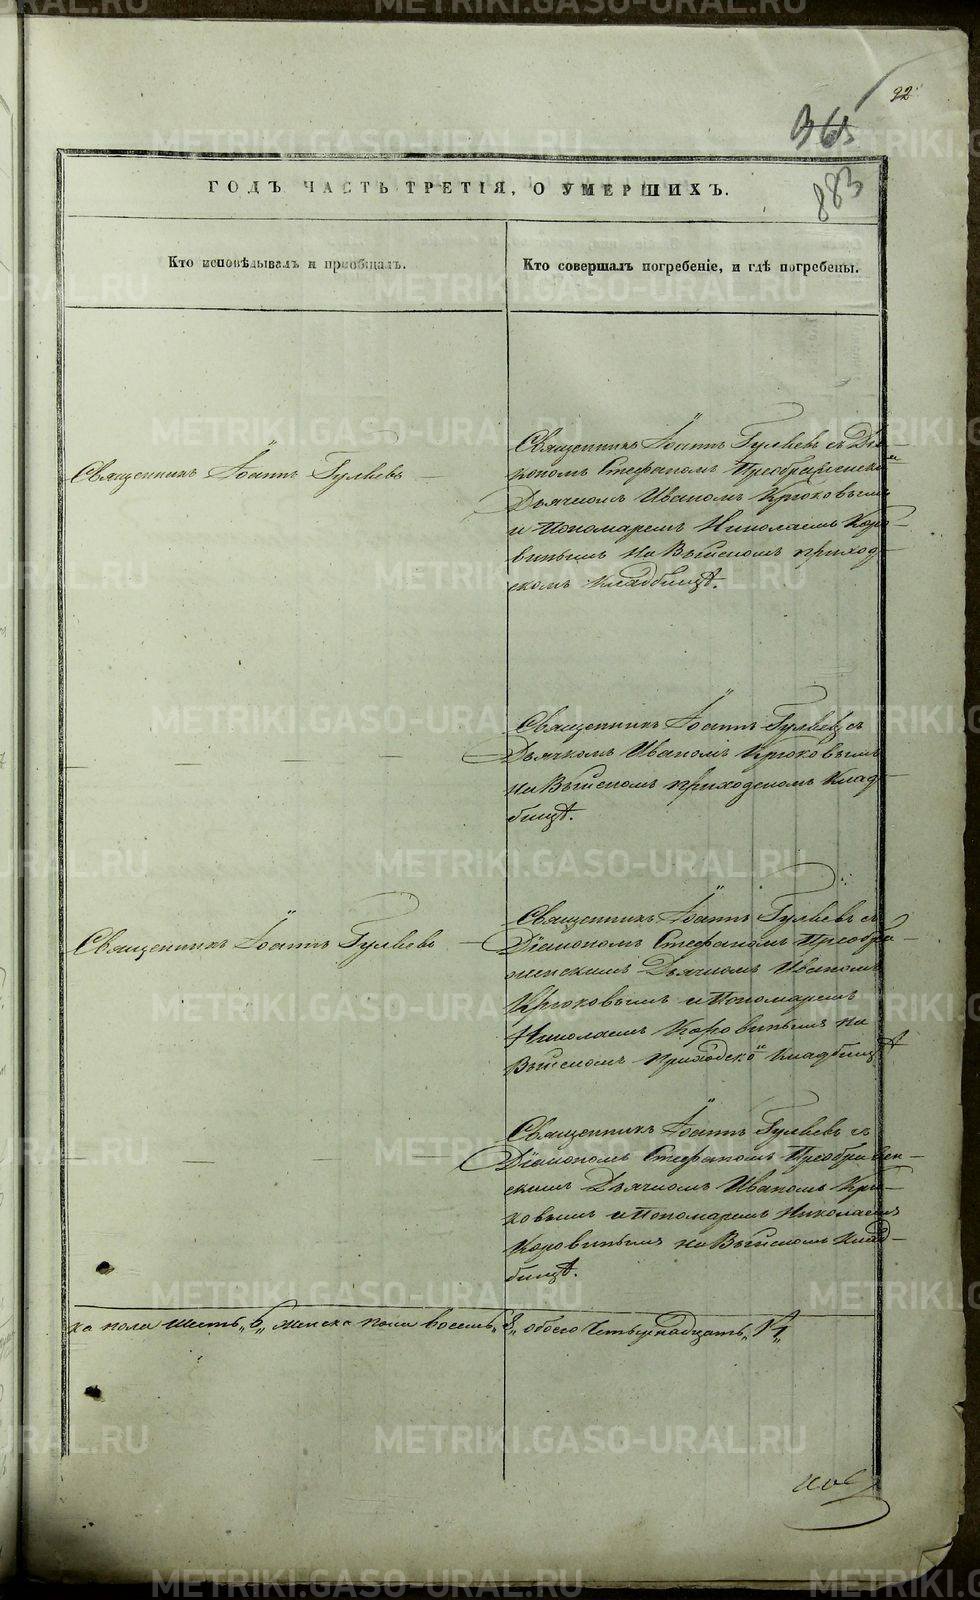 92
365
883
ГОДЪ ЧАСТЬ ТРЕТІЯ, О УМЕРШИХЪ.
Кто исповѣдывалъ и пріобщалъ.
Кто совершалъ погребеніе, и гдѣ погребены.
Священникъ Іоаннъ Гуляевъ
Священникъ Іоаннъ Гуляевъ съ Діа-
кономъ Стефаномъ Преображенскимъ
Дьячкомъ Иваномъ Крюковымъ
и Пономаремъ Николаемъ Коро-
винымъ на Выйскомъ приход-
скомъ кладбищѣ.
Священникъ Іоаннъ Гуляевъ съ
Дьячкомъ Иваномъ Крюковымъ
на Выйскомъ приходскомъ клад-
бищѣ.
Священникъ Іоаннъ Гуляевъ
Священникъ Іоаннъ Гуляевъ съ
Діакономъ Стефаномъ Преобра-
женскимъ Дьячкомъ Иваномъ
Крюковымъ и Пономаремъ
Николаемъ Коровинымъ на
Выйскомъ приходско кладбищѣ
Священникъ Іоаннъ Гуляевъ съ
Діакономъ Стефаномъ Преображен-
скимъ Дьячкомъ Иваномъ Крю-
ковымъ и Пономаремъ Николаемъ
Коровинымъ на Выйскомъ клад-
бищѣ.
ка пола шесть „6„ женска пола восемь „8„ обоего четырнадцать „14„
METRIKI.GASO-URAL.RU